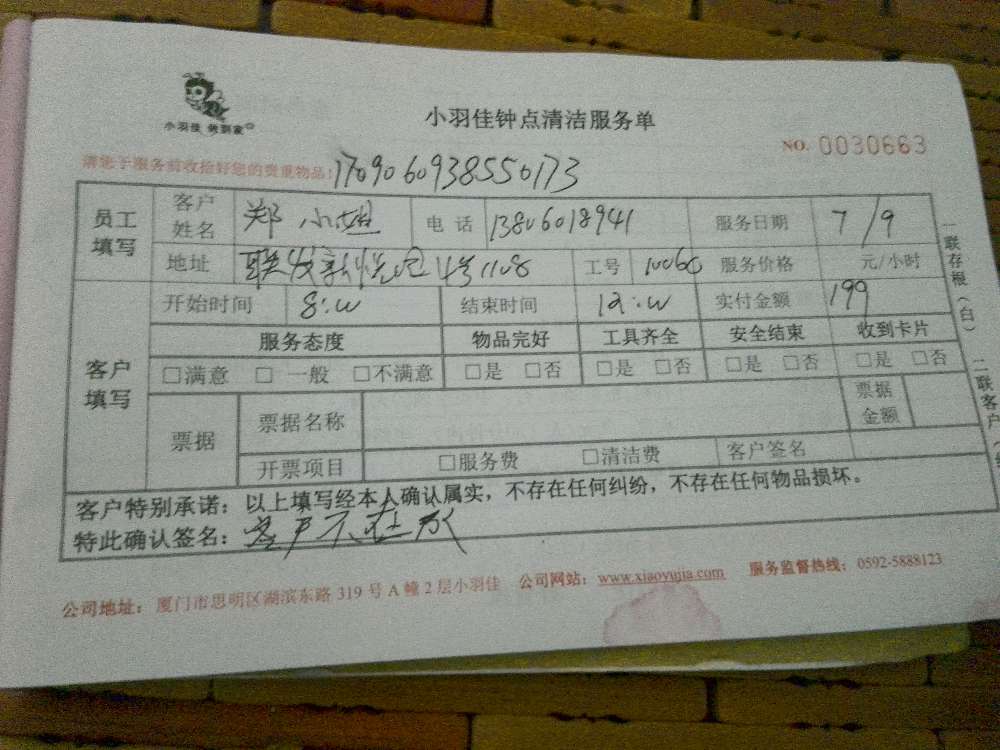 小羽佳 做到家
小羽佳钟点清洁服务单
NO. 0030663
请您于服务前收拾好您的贵重物品! 170906093855 0173
员工填写 客户姓名 郑小姐 电话 13806018941 服务日期 7/9
地址 联发新悦 4号1108 工号 服务价格 元/小时
客户填写 开始时间 8:00 结束时间 12:00 实付金额 199
服务态度 物品完好 工具齐全 安全结束 收到卡片
□满意 □一般 □不满意 □是 □否 □是 □否 □是 □否 □是 □否
票据 票据名称 票据金额
开票项目 □服务费 □清洁费 客户签名
客户特别承诺:以上填写经本人确认属实,不存在任何纠纷,不存在任何物品损坏。
特此确认签名:客户不在家
公司地址:厦门市思明区湖滨东路 319 号 A 幢 2 层小羽佳 公司网站:www.xiaoyujia.com 服务监督热线:0592-5888123
一联存根(白) 二联客户